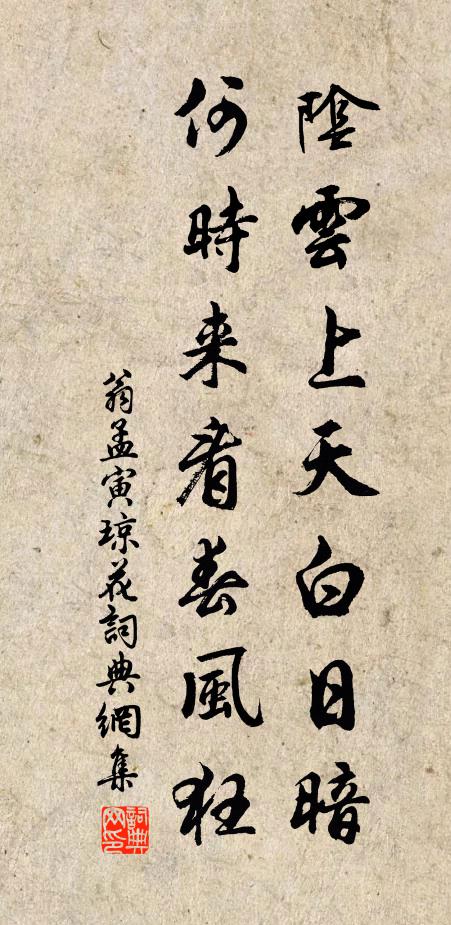 陰雲上天白日暗
何時来看春風狂
翁孟寅琼花詞典網集
詞典網印